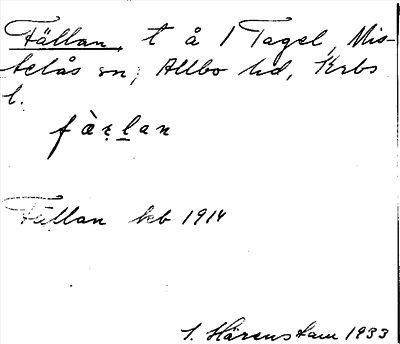 Fällan, t å 1 Tagel, Mis-
telås sn, Allbo hd, Krbs
l.
fàɽlan
Fällan kb 1914
S. Härenstam 1933